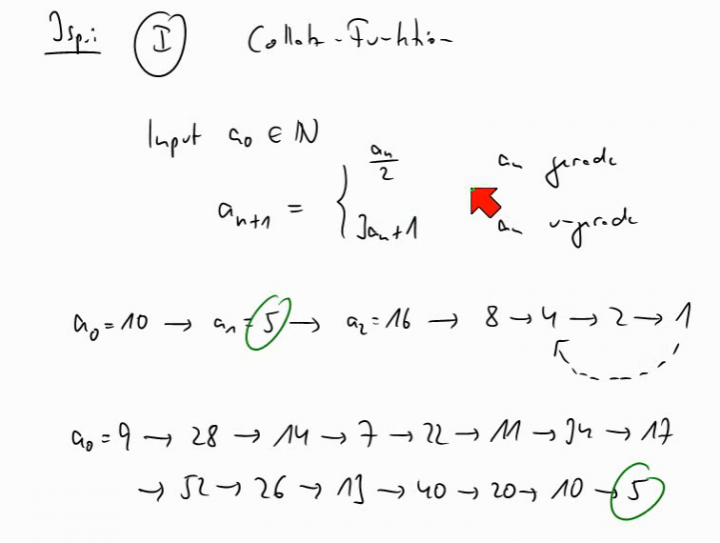 Bsp.: I Collatz-Funktion
Input a₀ ∈ ℕ
aₙ₊₁ = { aₙ/2 aₙ gerade
3aₙ+1 aₙ ungerade
a₀ = 10 → a₁ = 5 → a₂ = 16 → 8 → 4 → 2 → 1
a₀ = 9 → 28 → 14 → 7 → 22 → 11 → 34 → 17
→ 52 → 26 → 13 → 40 → 20 → 10 → 5